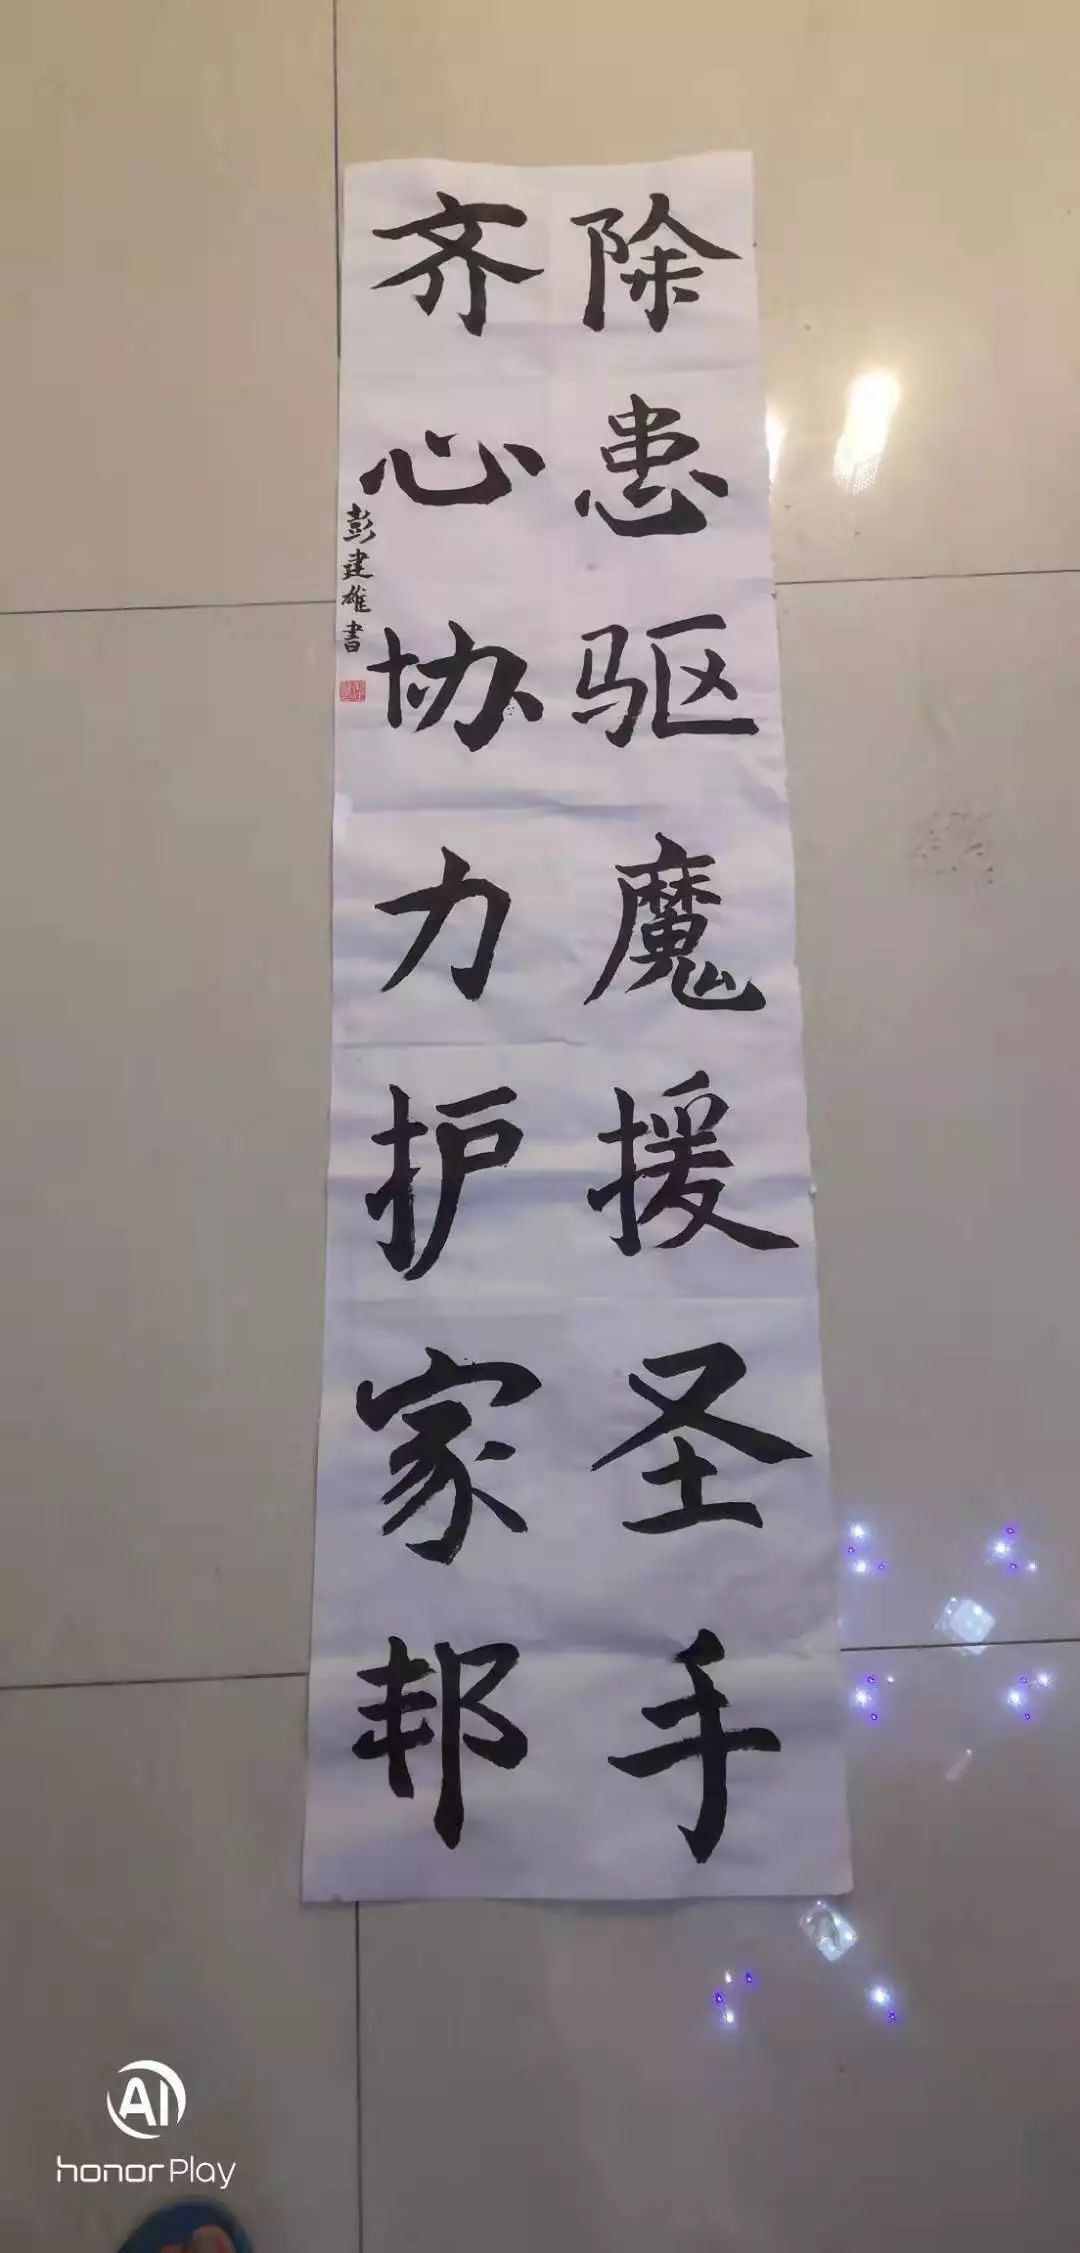 除患驱魔援圣手
齐心协力护家邦
彭建雄書
AI
honor Play